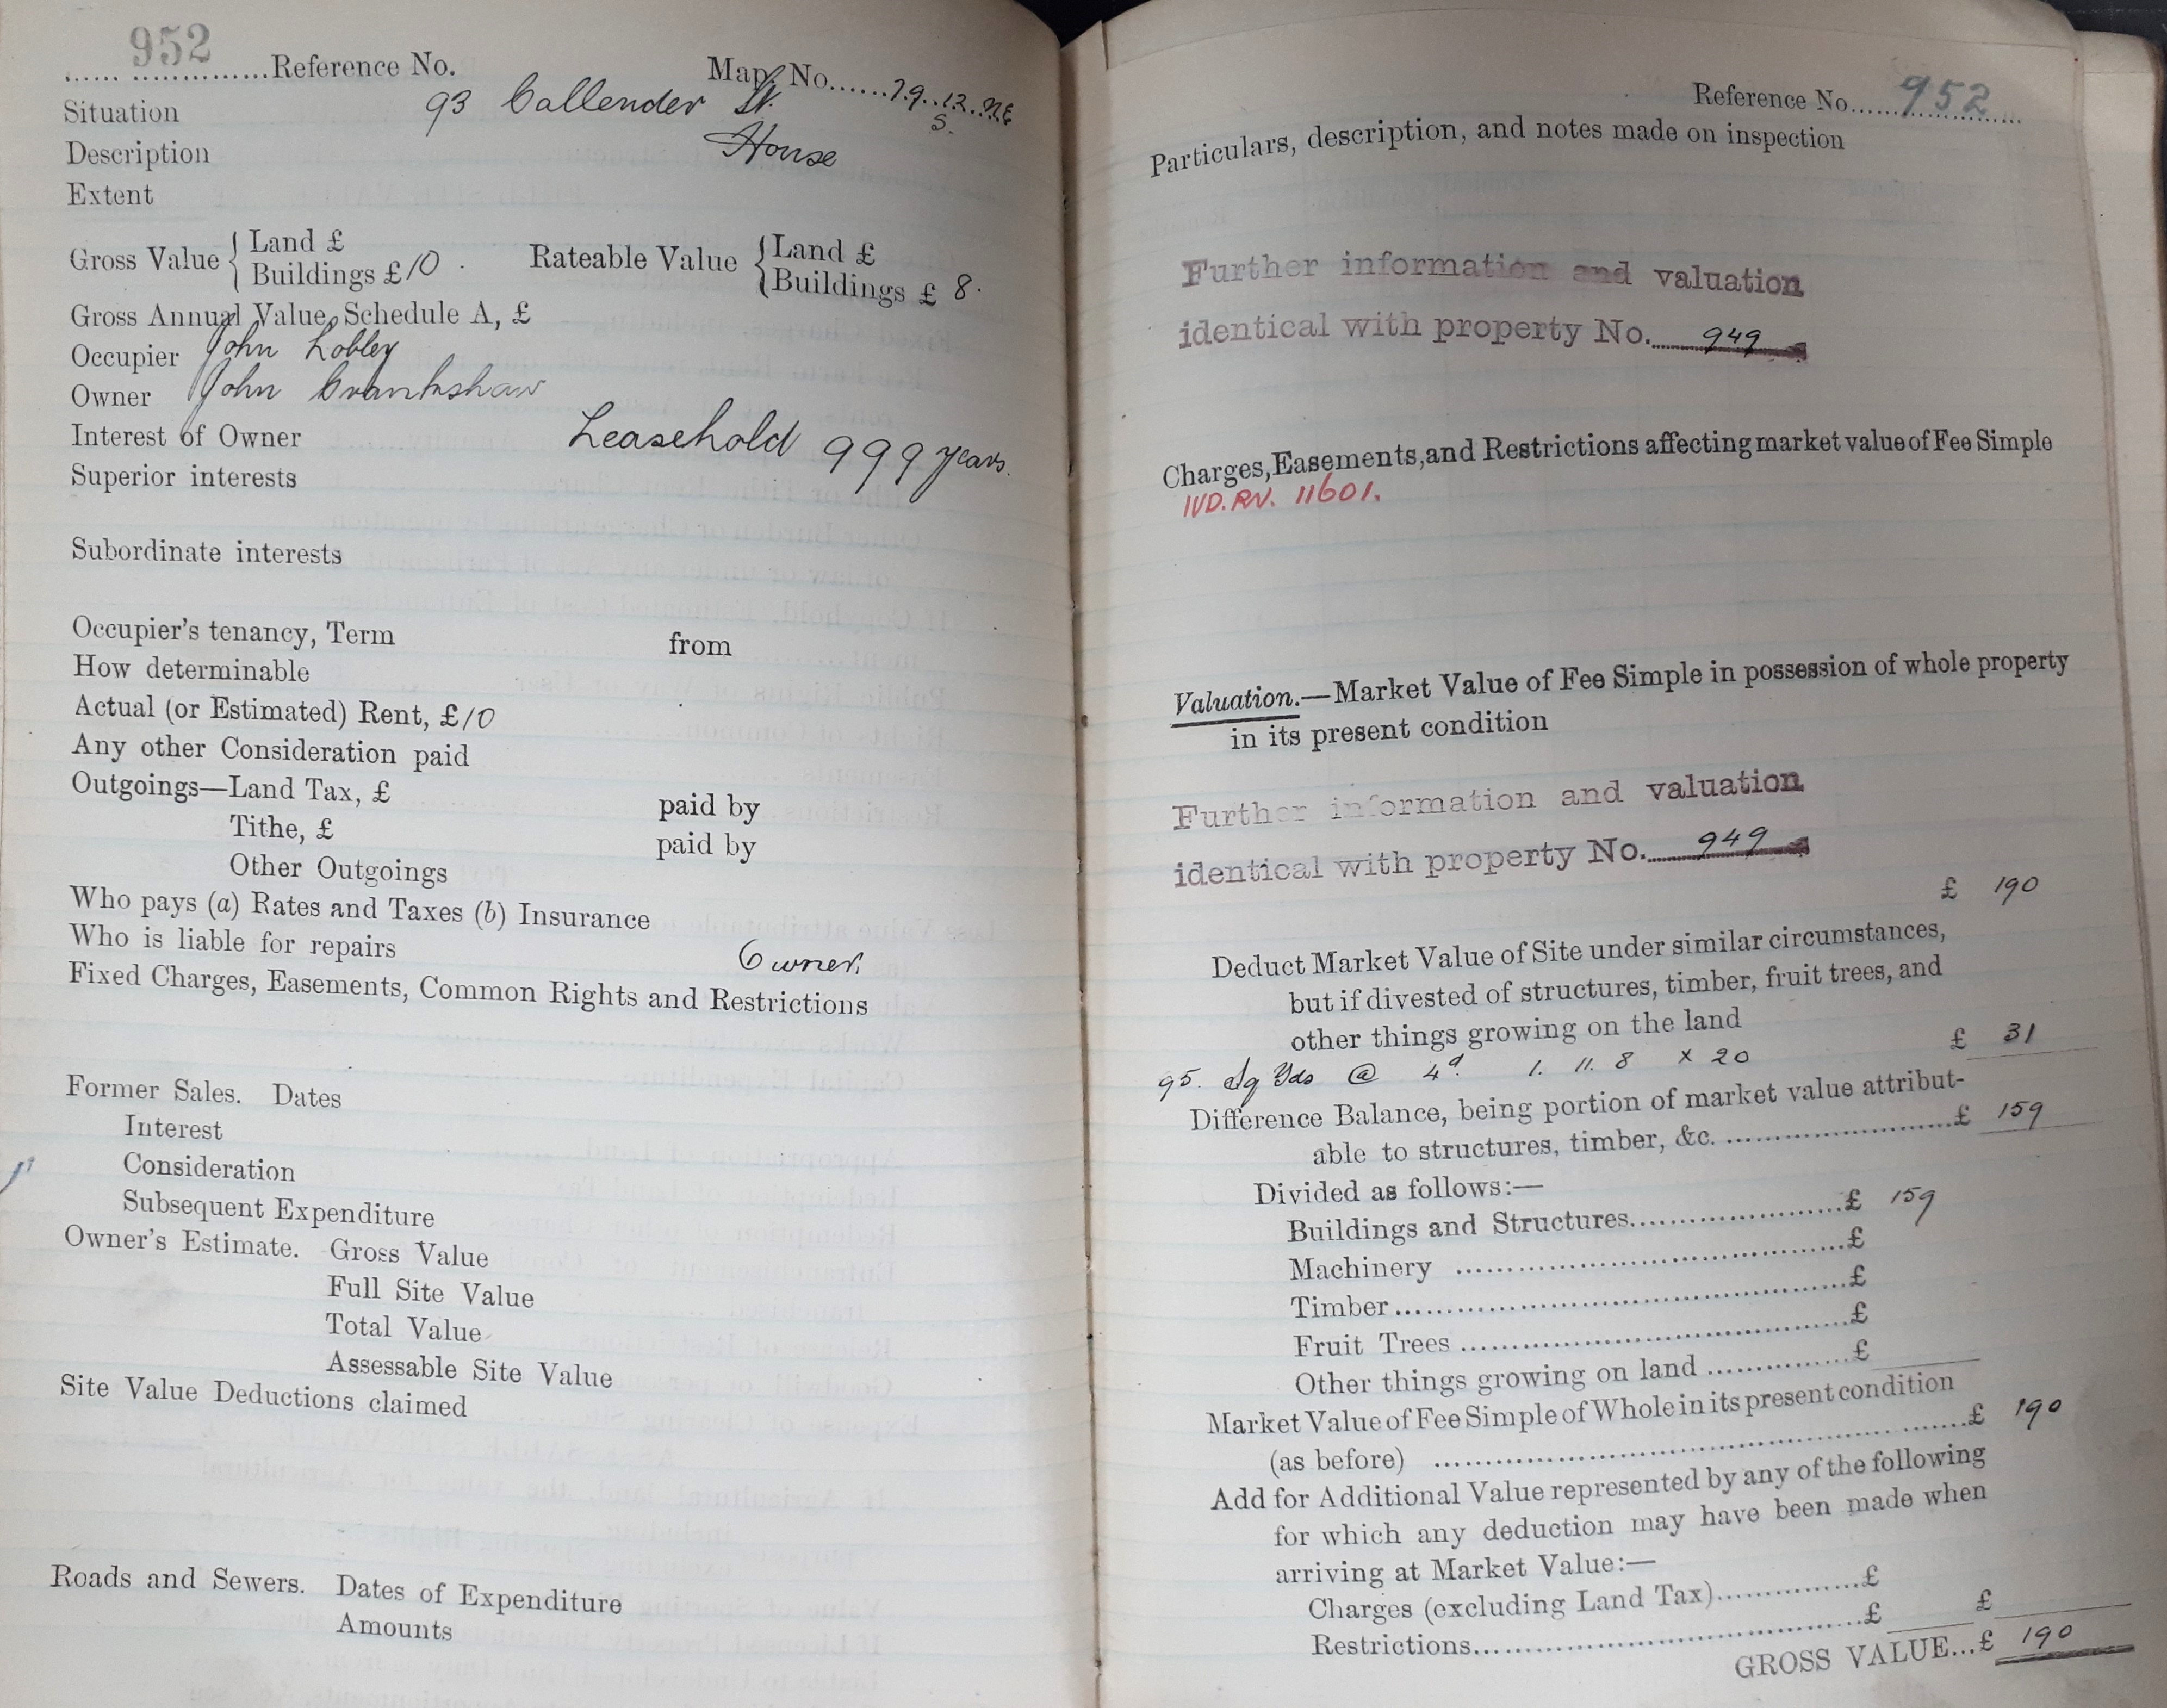 952
Reference No. Map. No. 79.12.NE
S.
Situation 93 Callender St.
Description House
Extent
Gross Value { Land £ Rateable Value { Land £
Buildings £ 10. Buildings £ 8.
Gross Annual Value, Schedule A, £
Occupier John Lobley
Owner John Crankshaw
Interest of Owner Leasehold 999 years.
Superior interests
Subordinate interests
Occupier's tenancy, Term from
How determinable
Actual (or Estimated) Rent, £10
Any other Consideration paid
Outgoings—Land Tax, £ paid by
Tithe, £ paid by
Other Outgoings
Who pays (a) Rates and Taxes (b) Insurance
Who is liable for repairs Owner.
Fixed Charges, Easements, Common Rights and Restrictions
Former Sales. Dates
Interest
Consideration
Subsequent Expenditure
Owner's Estimate. Gross Value
Full Site Value
Total Value
Assessable Site Value
Site Value Deductions claimed
Roads and Sewers. Dates of Expenditure
Amounts
Reference No. 952
Particulars, description, and notes made on inspection
Further information and valuation
identical with property No. 949
Charges, Easements, and Restrictions affecting market value of Fee Simple
IVD. RN. 11601.
Valuation.—Market Value of Fee Simple in possession of whole property
in its present condition
Further information and valuation
identical with property No. 949
£ 190
Deduct Market Value of Site under similar circumstances,
but if divested of structures, timber, fruit trees, and
other things growing on the land £ 31
95. Sq Yds @ 4d. 1. 11. 8 x 20
Difference Balance, being portion of market value attribut-
able to structures, timber, &c. £ 159
Divided as follows:—
Buildings and Structures £ 159
Machinery £
Timber £
Fruit Trees £
Other things growing on land £
Market Value of Fee Simple of Whole in its present condition
(as before) £ 190
Add for Additional Value represented by any of the following
for which any deduction may have been made when
arriving at Market Value:—
Charges (excluding Land Tax) £
Restrictions £ £
GROSS VALUE...£ 190